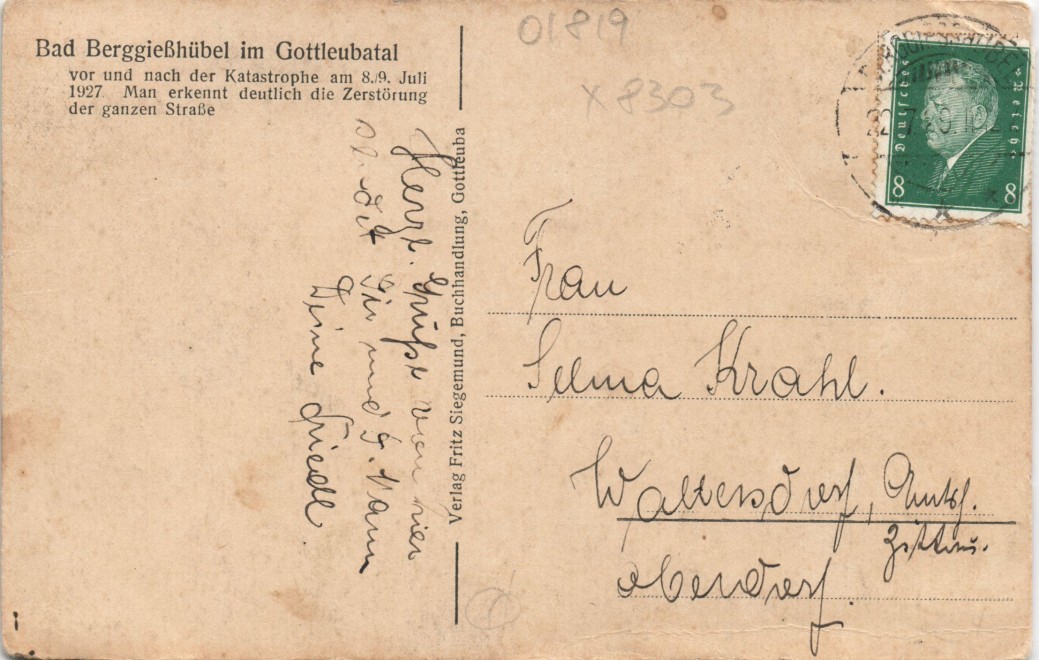 Bad Berggießhübel im Gottleubatal
vor und nach der Katastrophe am 8./9. Juli
1927. Man erkennt deutlich die Zerstörung
der ganzen Straße
01819
x 8303
Deutsches Reich
8 8
Herzl. Grüße von hier
und d. Mann
Deine Friedl
Verlag Fritz Siegemund, Buchhandlung, Gottleuba
Frau
Selma Krahl.
Waltersdorf, Amtsh.
Zittau.
Oberdorf.